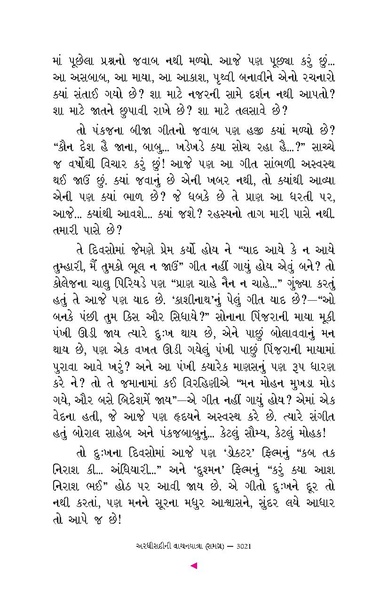 માં પૂછેલા પ્રશ્નનો જવાબ નથી મળ્યો. આજે પણ પૂછ્યા કરું છું...
આ અસબાબ, આ માયા, આ આકાશ, પૃથ્વી બનાવીને એનો રચનારો
ક્યાં સંતાઈ ગયો છે? શા માટે નજરની સામે દર્શન નથી આપતો?
શા માટે જાતને છુપાવી રાખે છે? શા માટે તલસાવે છે?
તો પંકજના બીજા ગીતનો જવાબ પણ હજી ક્યાં મળ્યો છે?
“કૌન દેશ હૈ જાના, બાબુ... ખડેખડે ક્યા સોચ રહા હૈ...?” સાચ્ચે
જ વર્ષોથી વિચાર કરું છું! આજે પણ આ ગીત સાંભળી અસ્વસ્થ
થઈ જાઉં છું. ક્યાં જવાનું છે એની ખબર નથી, તો ક્યાંથી આવ્યા
એની પણ ક્યાં ભાળ છે? જે ધબકે છે તે પ્રાણ આ ધરતી પર,
આજે... ક્યાંથી આવશે... ક્યાં જશે? રહસ્યનો તાગ મારી પાસે નથી.
તમારી પાસે છે?
તે દિવસોમાં જેમણે પ્રેમ કર્યો હોય ને “યાદ આયે કે ન આયે
તુમ્હારી, મૈં તુમકો ભૂલ ન જાઉં” ગીત નહીં ગાયું હોય એવું બને? તો
કૉલેજના ચાલુ પિરિયડે પણ “પ્રાણ ચાહે નૈન ન ચાહે...” ગુંજ્યા કરતું
હતું તે આજે પણ યાદ છે. ‘કાશીનાથ’નું પેલું ગીત યાદ છે?—“ઓ
બનકે પંછી તુમ કિસ ઔર સિધાયે?” સોનાના પિંજરાની માયા મૂકી
પંખી ઊડી જાય ત્યારે દુઃખ થાય છે, એને પાછું બોલાવવાનું મન
થાય છે, પણ એક વખત ઊડી ગયેલું પંખી પાછું પિંજરાની માયામાં
પુરાવા આવે ખરું? અને આ પંખી ક્યારેક માણસનું પણ રૂપ ધારણ
કરે ને? તો તે જમાનામાં કઈ વિરહિણીએ “મન મોહન મુખડા મોડ
ગયે, ઔર બસે બિદેશમેં જાય”—એ ગીત નહીં ગાયું હોય? એમાં એક
વેદના હતી, જે આજે પણ હૃદયને અસ્વસ્થ કરે છે. ત્યારે સંગીત
હતું બોરાલ સાહેબ અને પંકજબાબુનું... કેટલું સૌમ્ય, કેટલું મોહક!
તો દુઃખના દિવસોમાં આજે પણ ‘ડૉક્ટર’ ફિલ્મનું “કબ તક
નિરાશ કી... અંધિયારી...” અને ‘દુશ્મન’ ફિલ્મનું “કરું ક્યા આશ
નિરાશ ભઈ” હોઠ પર આવી જાય છે. એ ગીતો દુઃખને દૂર તો
નથી કરતાં, પણ મનને સૂરના મધુર આશ્વાસને, સુંદર લયે આધાર
તો આપે જ છે!
અરધીસદીની વાચનયાત્રા (સમગ્ર) — 3021